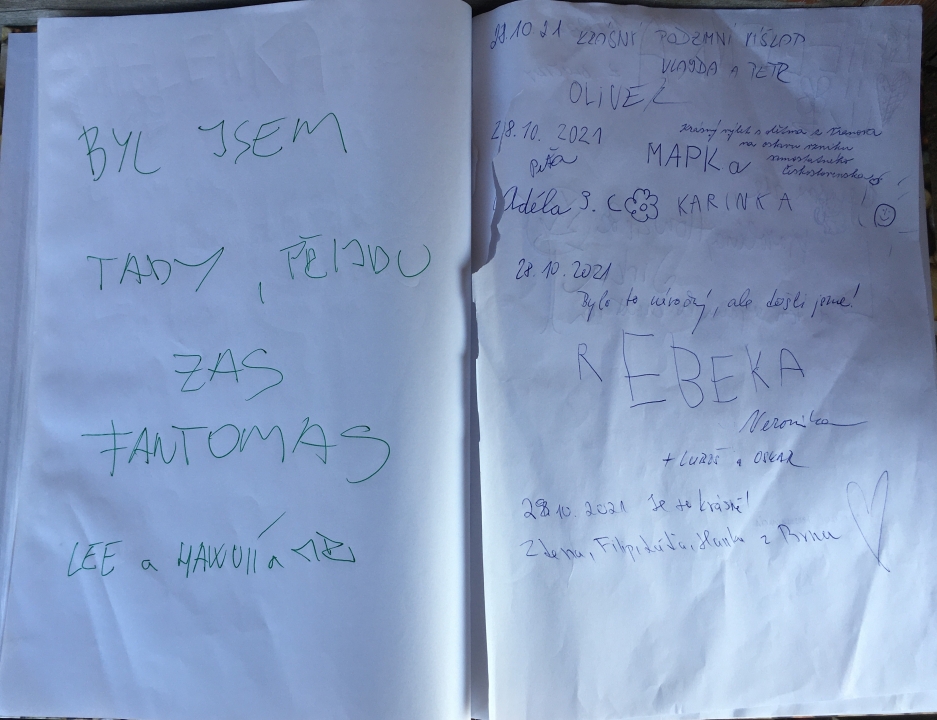 BYL JSEM
TADY, PŘIJDU
ZAS
FANTOMAS
LEE a
28.10.21 KRÁSNÝ PODZIMNÍ
VLAĎDA A PETR
OLIVER
28.10.2021
krásný výlet s dětma z Trnovce
na oslavu vzniku
samostatného
Československa
Péťa
MAPKa
Adéla S. C KARINKA
28.10.2021
Bylo to náročný, ale došli jsme!
REBEKA
Veronika
+ LUBOŠ a OSKAR
28.10.2021 Je to krásné!
Zdena, Filip, Hanka z Brna